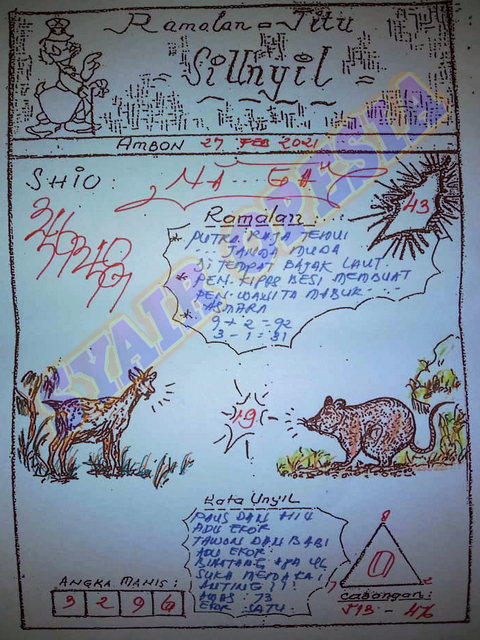 Ramalan = Jitu
Si Unyil
AMBON 27 FEB 2021
SHIO
NAGA
43
Ramalan:
* PUTRA RAJA TEMUI
JANDA MUDA
DI TEMPAT BAJAK LAUT
* PEN. KIPAS BESI MEMBUAT
PEN. WANITA MABUK
* ASMARA
9 + 2 = 92
3 - 1 = 31
KYAIR OPESIA
19
Kata Unyil
PAUS DAN HIU
ADU EKOR
TAWON DAN BABI
ADU EKOR
BINATANG APA YG
SUKA MEMAKAI
ANTING
AWAS : 73
EKOR : SATU
ANGKA MANIS :
3 2 9 6
8
0
7
2
Cabangan :
513 - 46